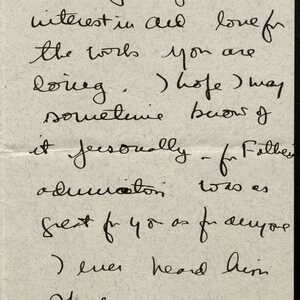 interest in and love for
the work you are
doing. I hope I may
sometime know of
it personally - for Father's
admiration was as
great for you as for anyone
I ever heard him